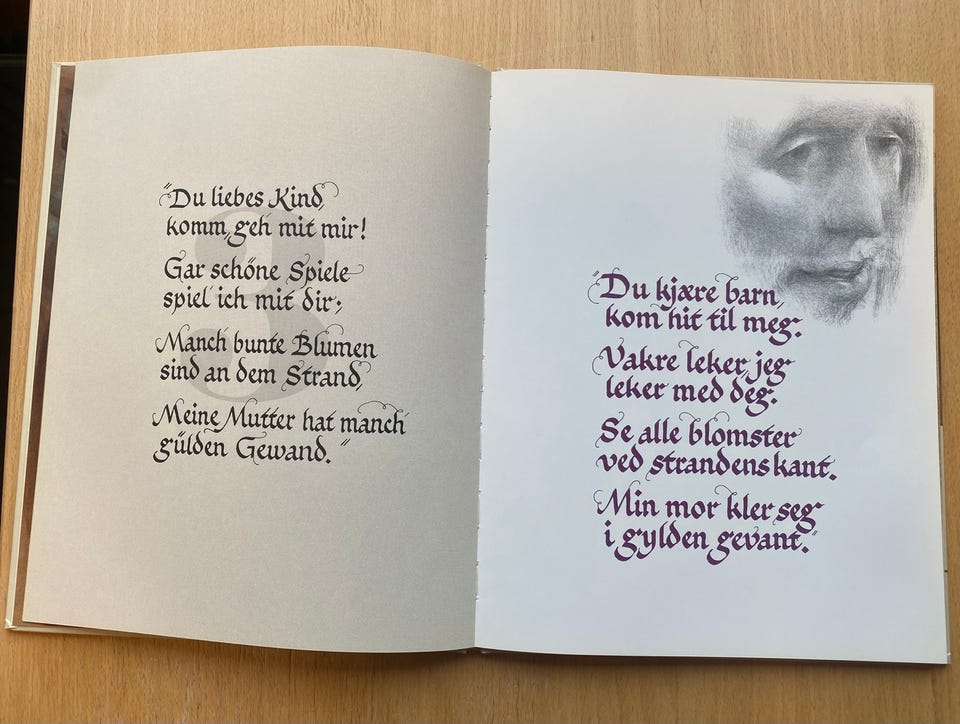 3
"Du liebes Kind,
komm, geh mit mir!
Gar schöne Spiele
spiel' ich mit dir;
Manch bunte Blumen
sind an dem Strand,
Meine Mutter hat manch
gülden Gewand."
"Du kjære barn,
kom hit til meg.
Vakre leker jeg
leker med deg.
Se alle blomster
ved strandens kant.
Min mor kler seg
i gylden gevant."